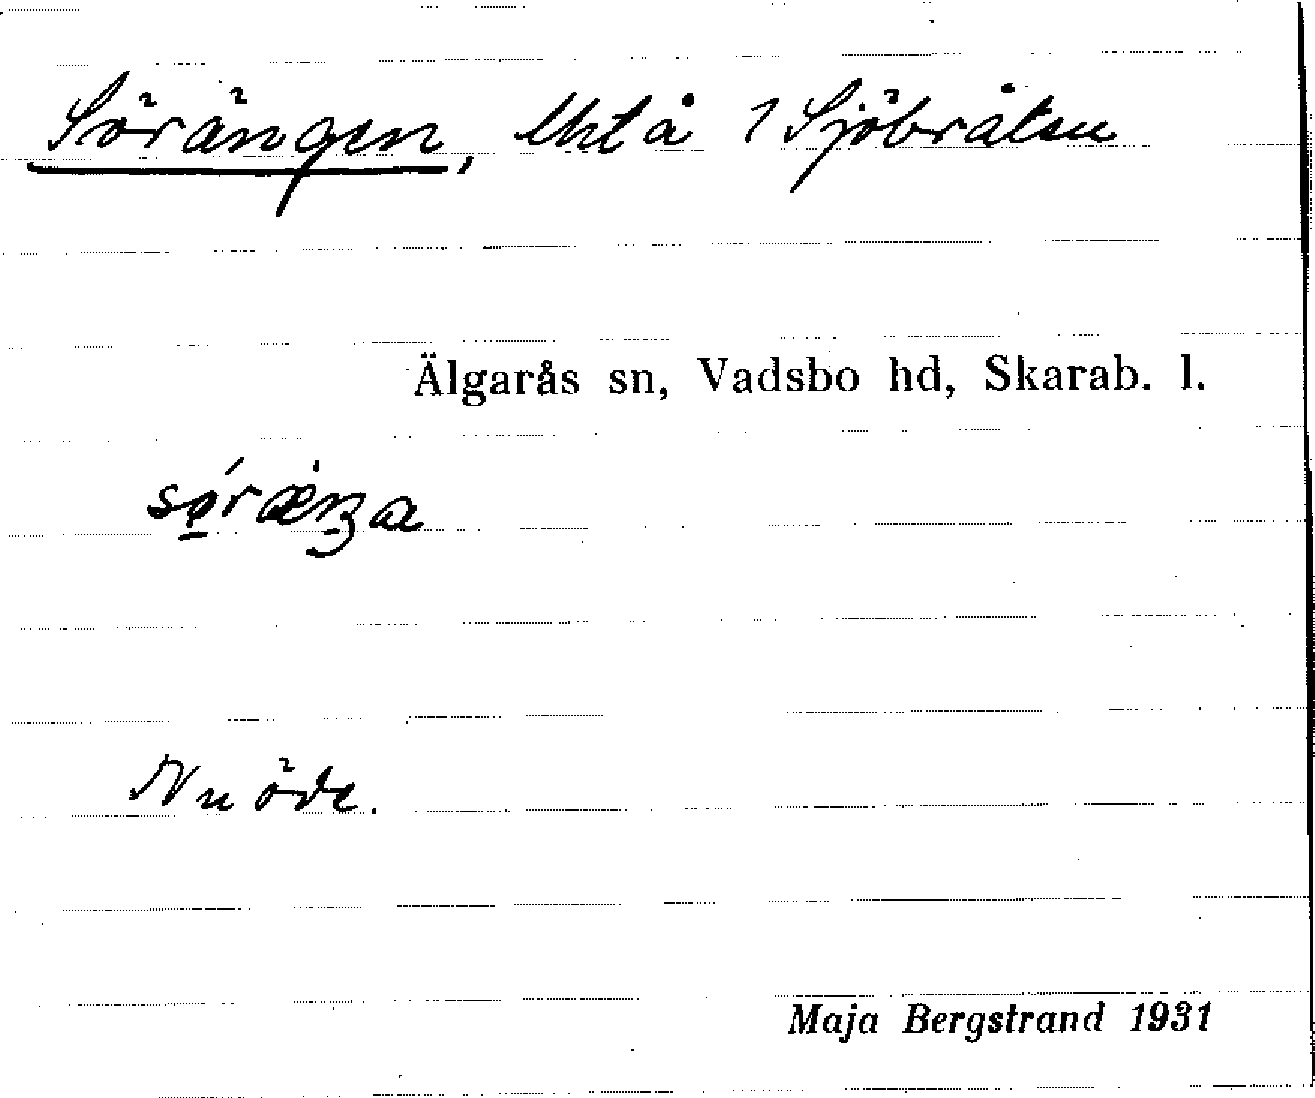 Sörängen, Uhl å 1 Sjöbråten
Älgarås sn, Vadsbo hd, Skarab. l.
Nu öde.
Maja Bergstrand 1931